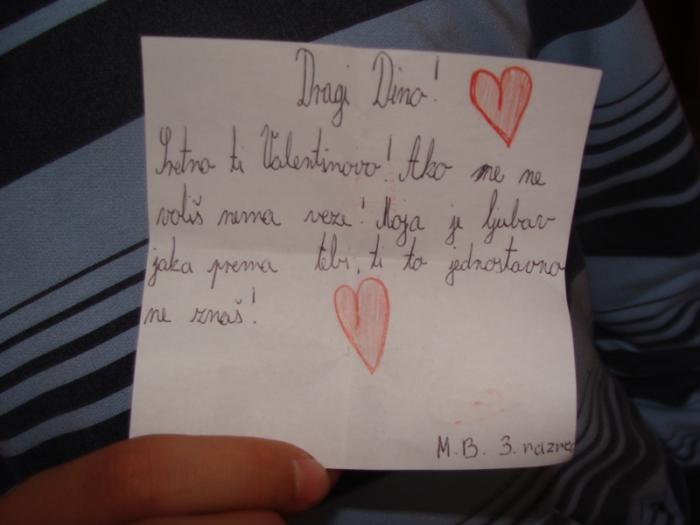 Dragi Dino!
Sretno ti Valentinovo! Ako me ne
voliš nema veze! Moja je ljubav
jaka prema tebi, ti to jednostavno
ne znaš!
M.B. 3. razred